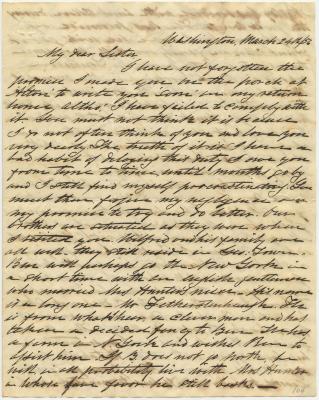 Washington, March 24th/52
My dear Sister
I have not forgotten the
promise I made you in the porch at
to write you soon on my return
home, altho' I have failed to comply with
it. You must not think it is because
I do not often think of you and love you
very dearly. The truth of it is I have a
bad habit of delaying this duty I owe you
from time to time until months go by
and I still find myself procrastinating. You
must then forgive my negligence on
my promise to try and do better. Our
brothers are situated as they were when
I visited you. and his family are
all well. They still reside in Geo: Town.
Ben will perhaps go to New York in
a short time with an English gentleman
who married Mrs Hunter's . His name
is a long one - Mr Fetherstonhaugh. He
is from what I hear a clever man and has
taken a decided fancy to Ben. He has
a farm in N York and wishes Ben to
assist him. If B does not go north he
will in all probability live with Mrs Hunter
in whose favor he still basks.